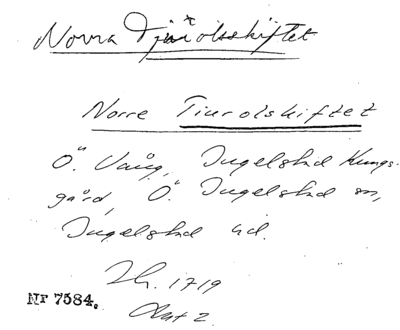 Norra Djurolsskiftet
Norre Tiurolskiftet
Ö. Vång, Ingelstad Kungs-
gård, Ö. Ingelstad sn,
Ingelstad hd.
Lh. 1719
Akt 2
Nr 7584.